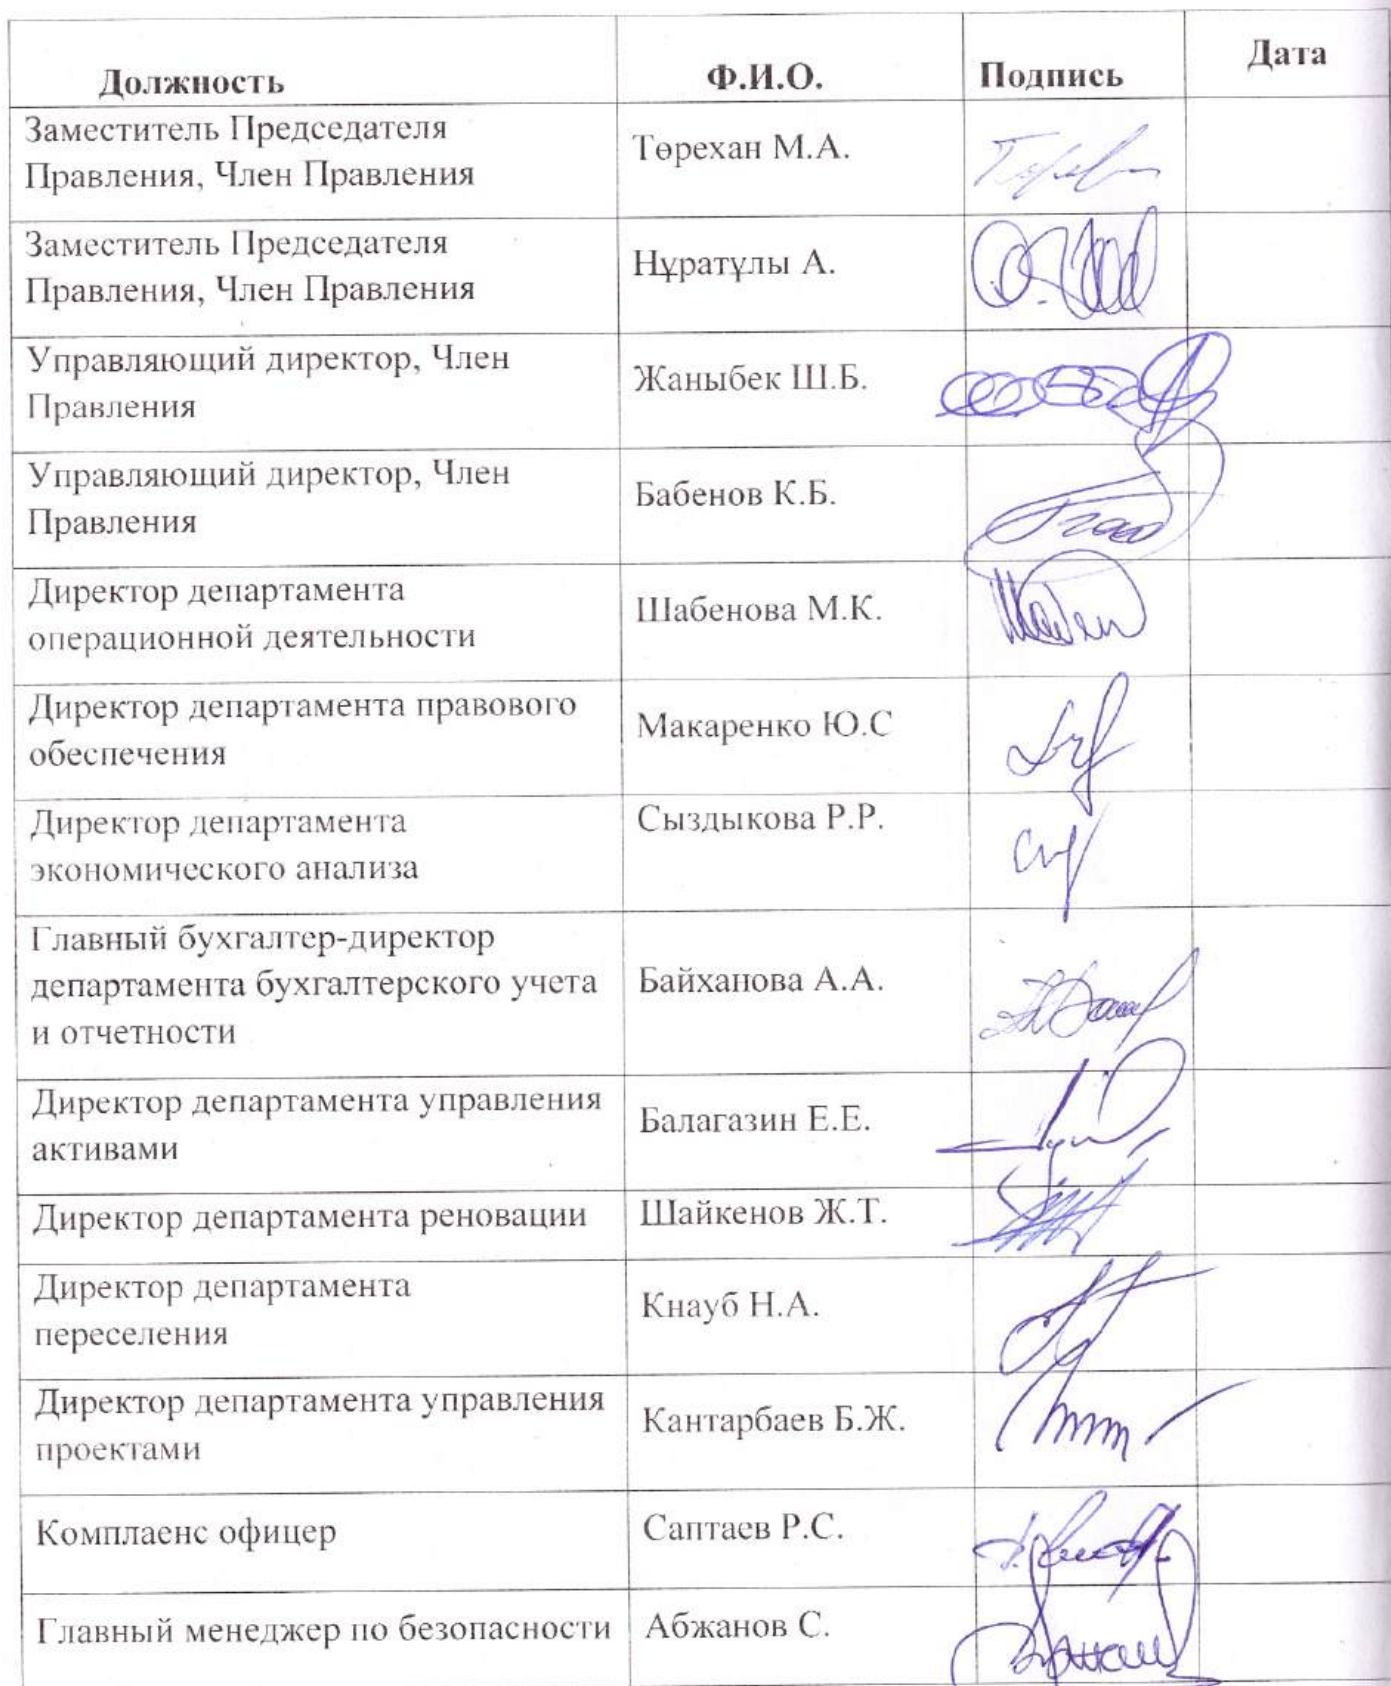 Должность Ф.И.О. Подпись Дата
Заместитель Председателя
Правления, Член Правления
Төрехан М.А.
Заместитель Председателя
Правления, Член Правления
Нұратұлы А.
Управляющий директор, Член
Правления
Жаныбек Ш.Б.
Управляющий директор, Член
Правления
Бабенов К.Б.
Директор департамента
операционной деятельности
Шабенова М.К.
Директор департамента правового
обеспечения
Макаренко Ю.С
Директор департамента
экономического анализа
Сыздыкова Р.Р.
Главный бухгалтер-директор
департамента бухгалтерского учета
и отчетности
Байханова А.А.
Директор департамента управления
активами
Балагазин Е.Е.
Директор департамента реновации
Шайкенов Ж.Т.
Директор департамента
переселения
Кнауб Н.А.
Директор департамента управления
проектами
Кантарбаев Б.Ж.
Комплаенс офицер
Саптаев Р.С.
Главный менеджер по безопасности
Абжанов С.